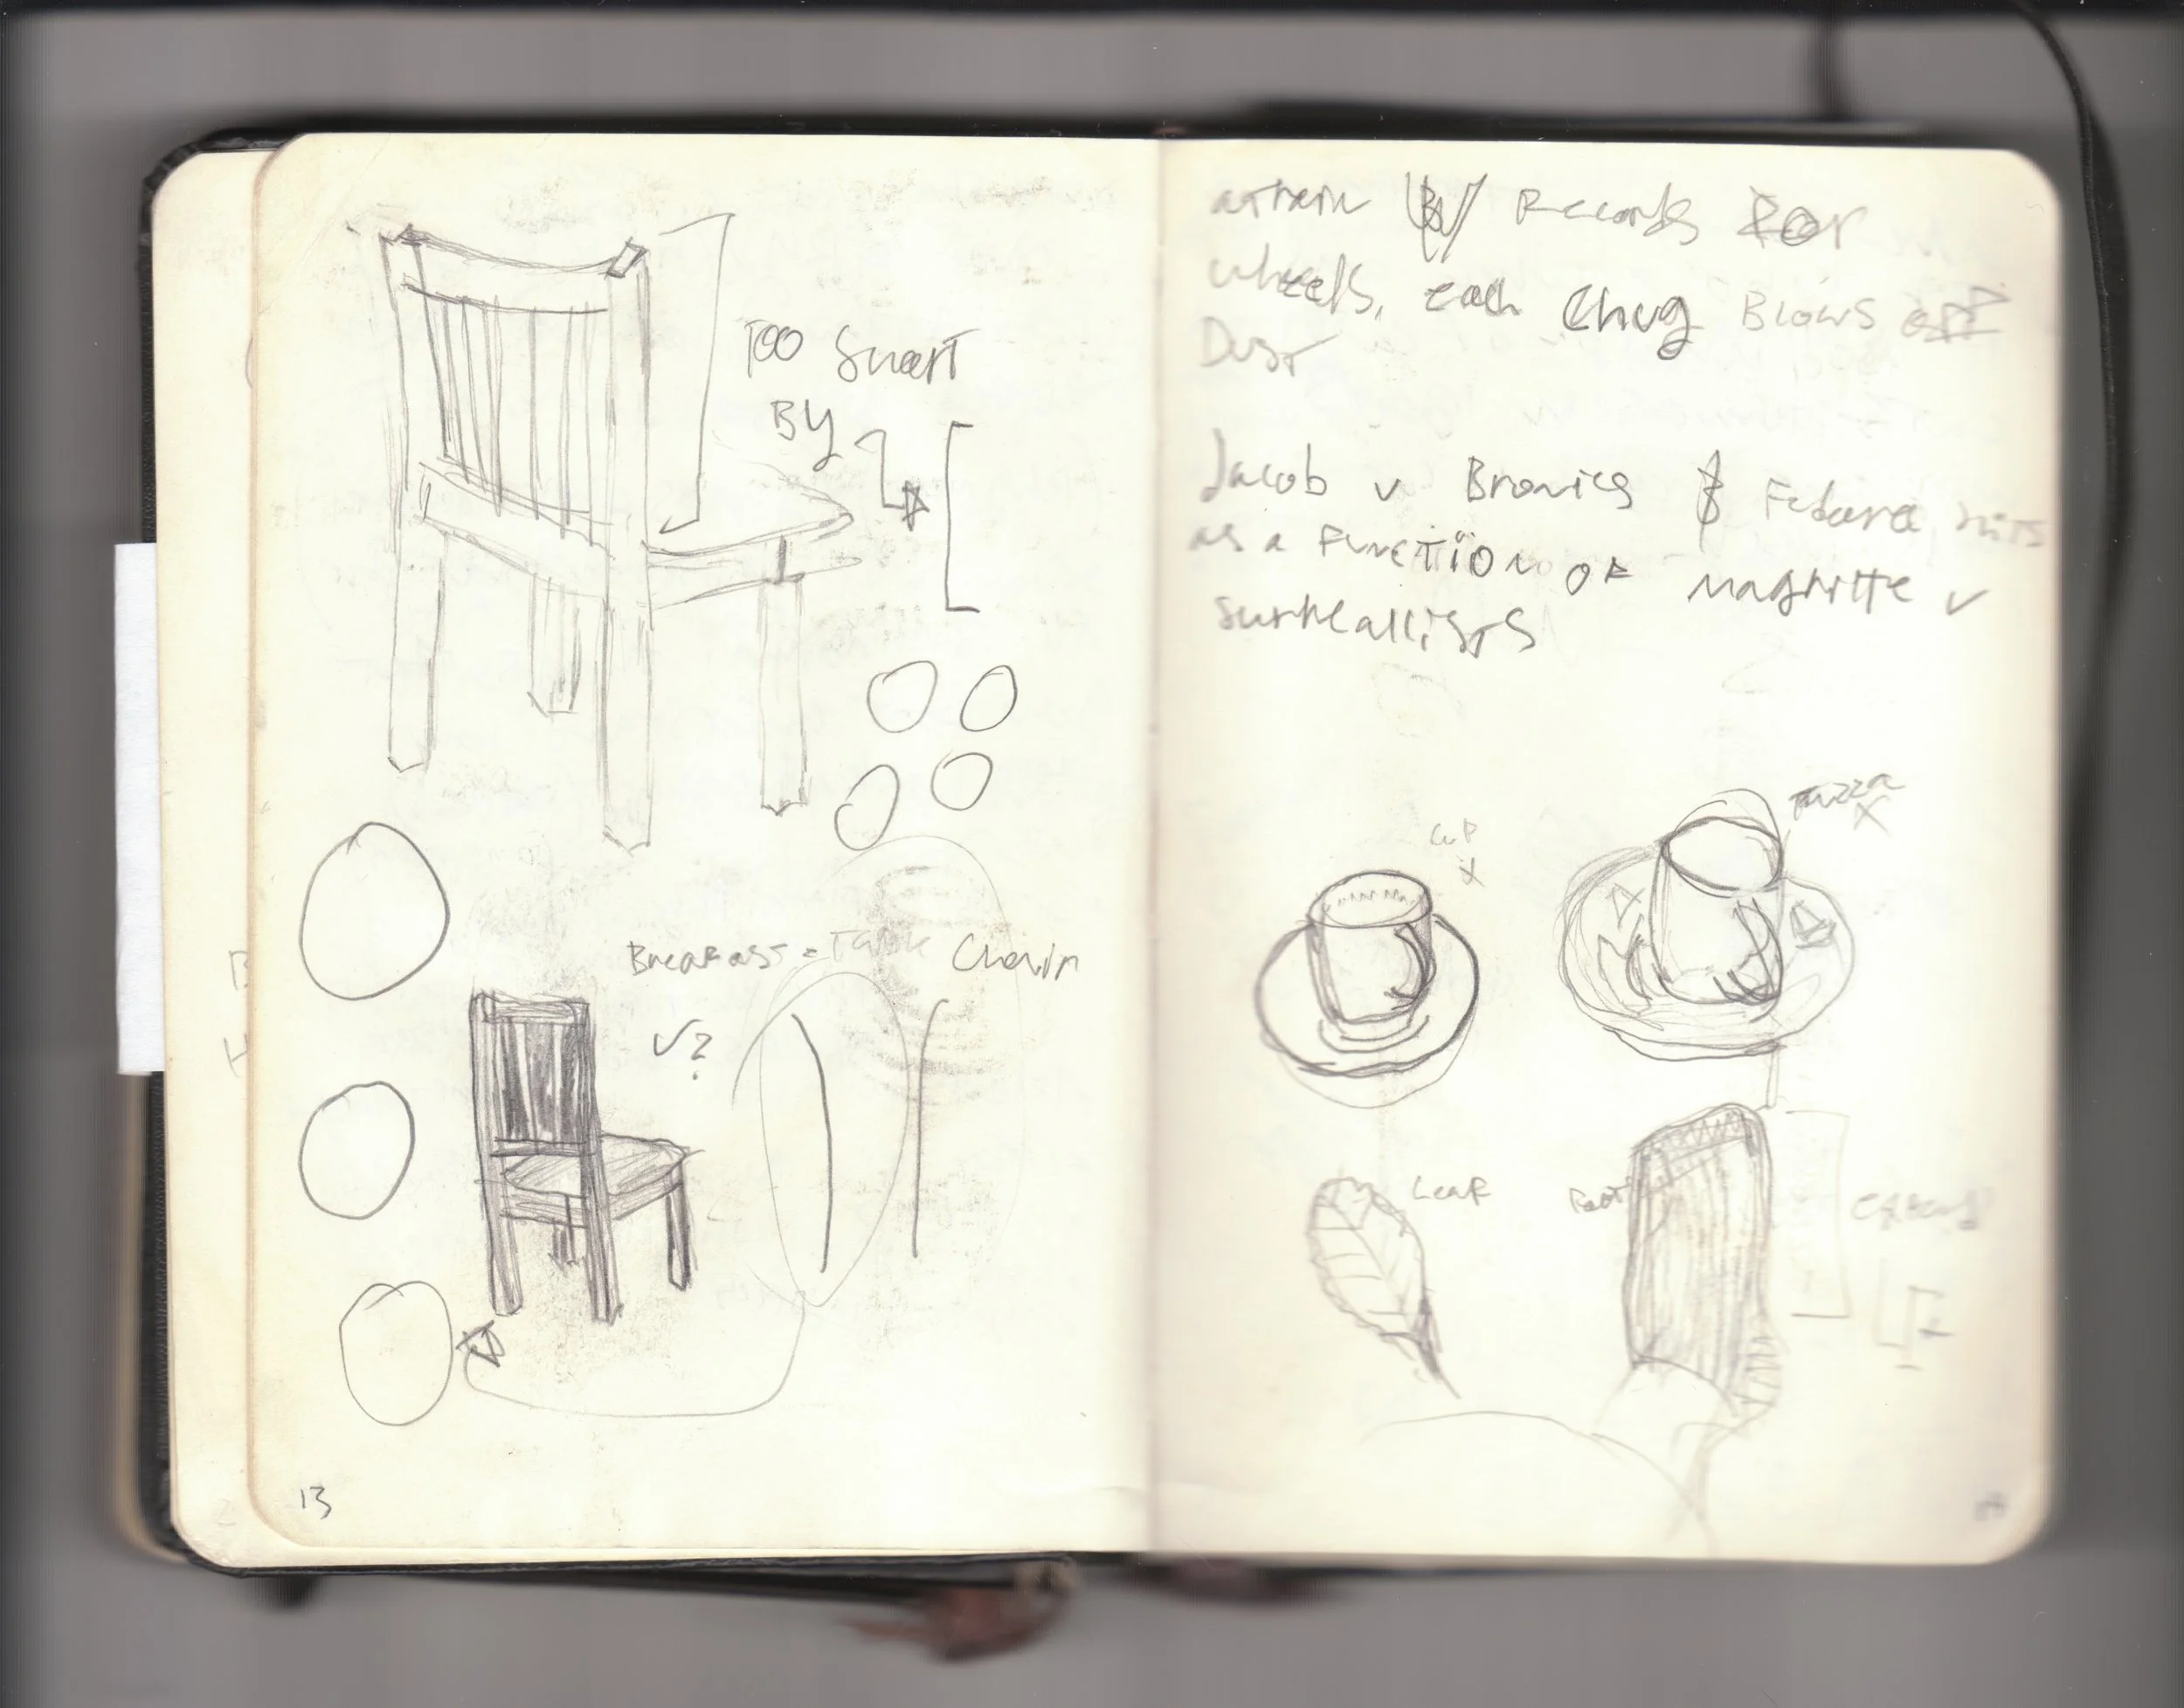 TOO Smart
BY
Breakfast = Table Chair
✓?
13
a train w/ Records For
wheels, each Chug Blows off
Dust
Jacob v Bronies & Fedora
as a Function of magritte v
surreallists
cup
x
x
Leaf
Foot
14